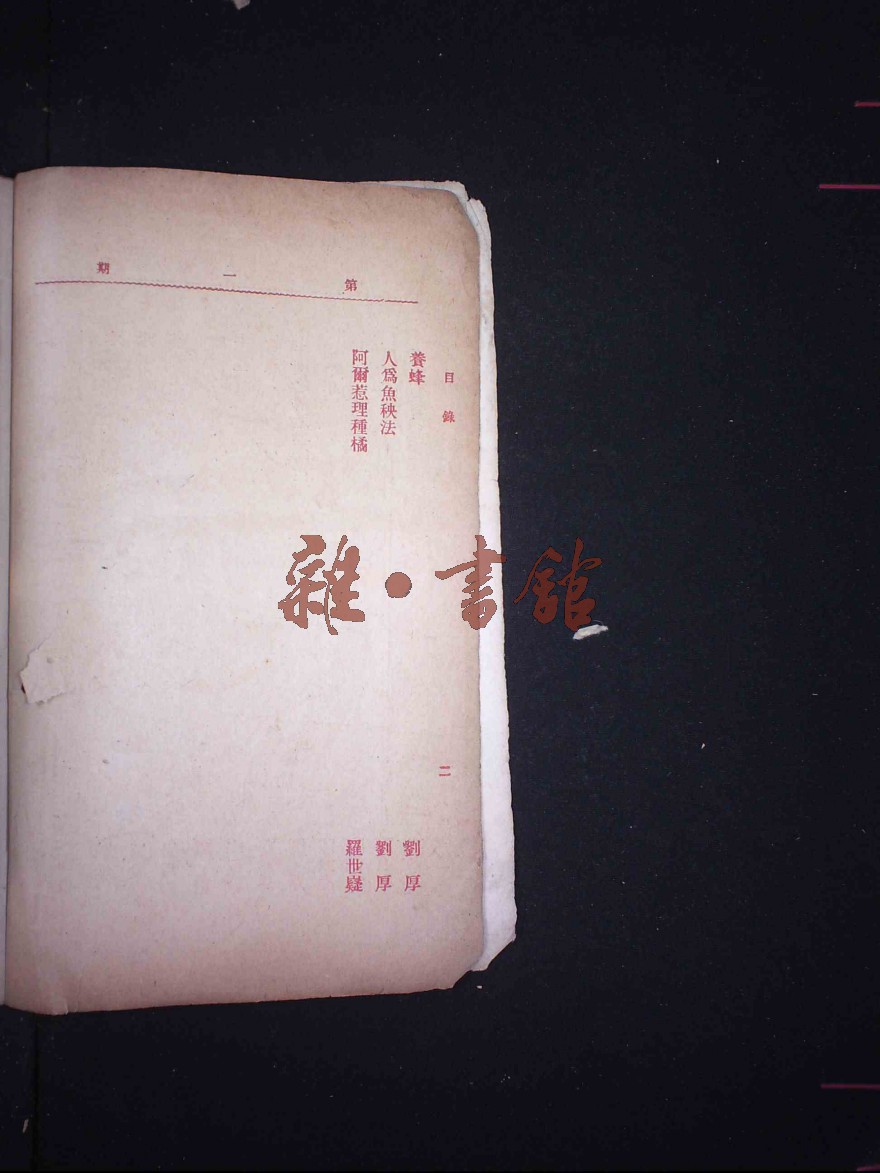 第一期
目錄
二
養蜂 劉厚
人爲魚秧法 劉厚
阿爾惹理種橘 羅世嶷
雜•書館